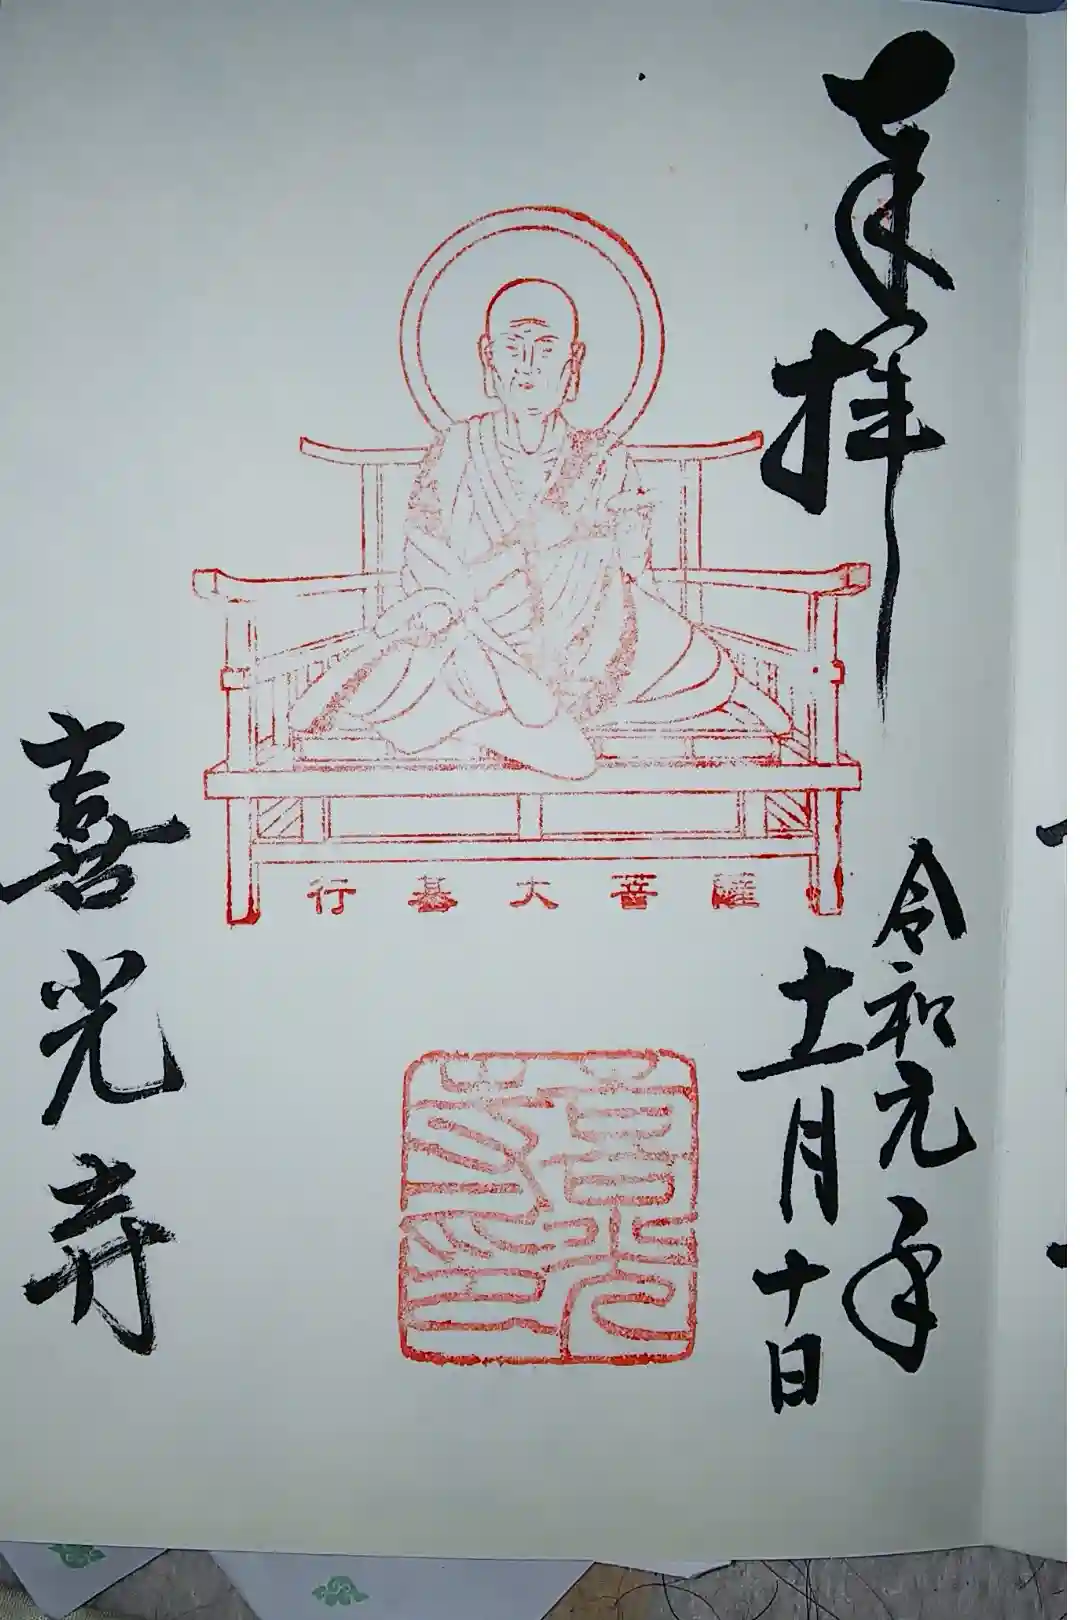 奉拝
令和元年
十一月十日
行基大菩薩
喜光寺